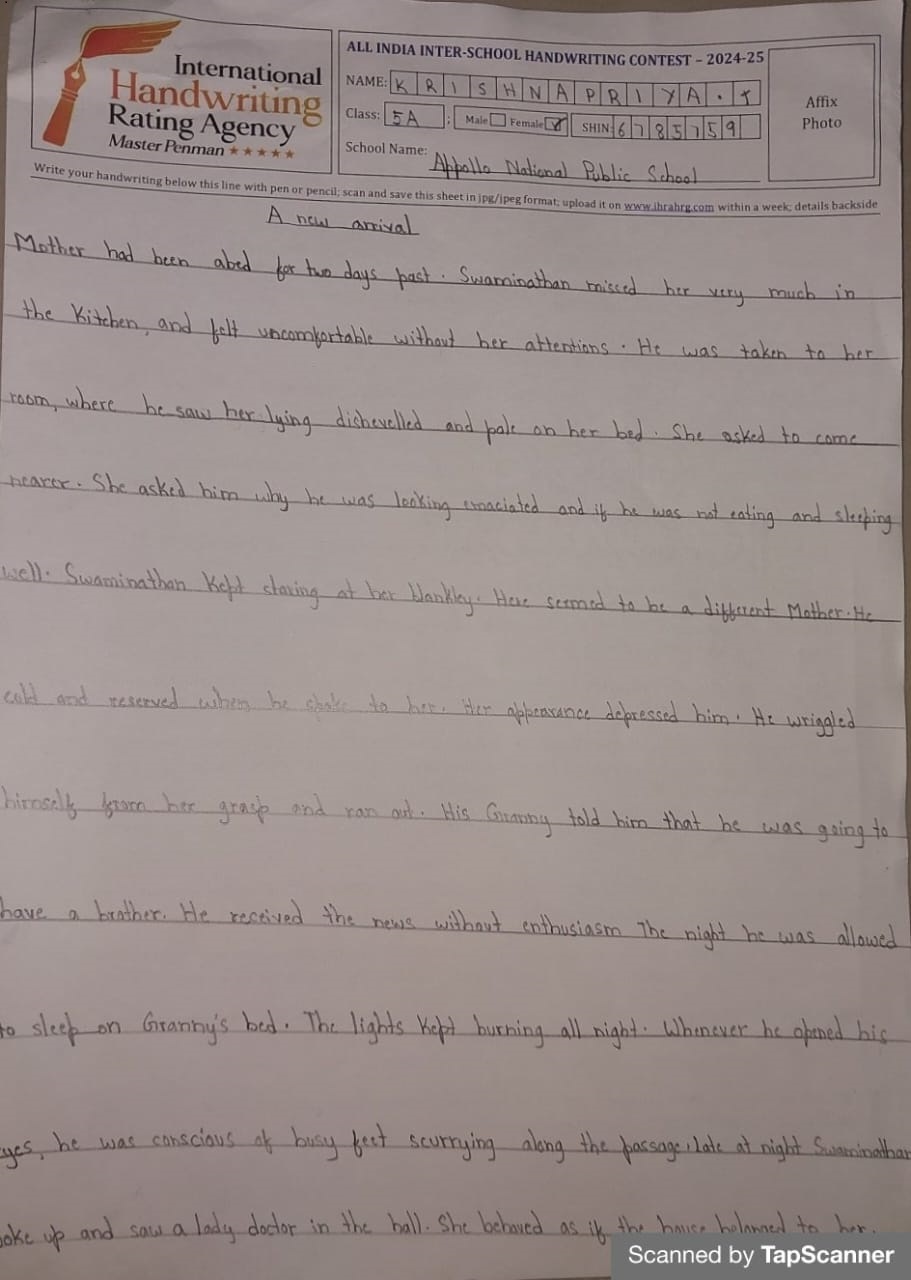 International
Handwriting
Rating Agency
Master Penman ★★★★★
ALL INDIA INTER-SCHOOL HANDWRITING CONTEST – 2024-25
NAME: KRISHNAPRIYA.T
Class: 5A ; Male Female SHIN 6785759
School Name: Appollo National Public School
Affix
Photo
Write your handwriting below this line with pen or pencil; scan and save this sheet in jpg/jpeg format; upload it on www.ihrahrg.com within a week; details backside
A new arrival
Mother had been abed for two days past. Swaminathan missed her very much in
the Kitchen, and felt uncomfortable without her attentions. He was taken to her
room, where he saw her lying dishevelled and pale on her bed. She asked to come
nearer. She asked him why he was looking emaciated and if he was not eating and sleeping
well. Swaminathan Kept staring at her blankley. Here seemed to be a different Mother. He
cold and reserved when he spoke to her. Her appearance depressed him. He wriggled
himself from her grasp and ran out. His Granny told him that he was going to
have a brother. He received the news without enthusiasm The night he was allowed
to sleep on Granny's bed. The lights Kept burning all night. Whenever he opened his
yes, he was conscious of busy feet scurrying along the passage, late at night Swaminathan
oke up and saw a lady doctor in the hall. She behaved as if the house to her.
Scanned by TapScanner